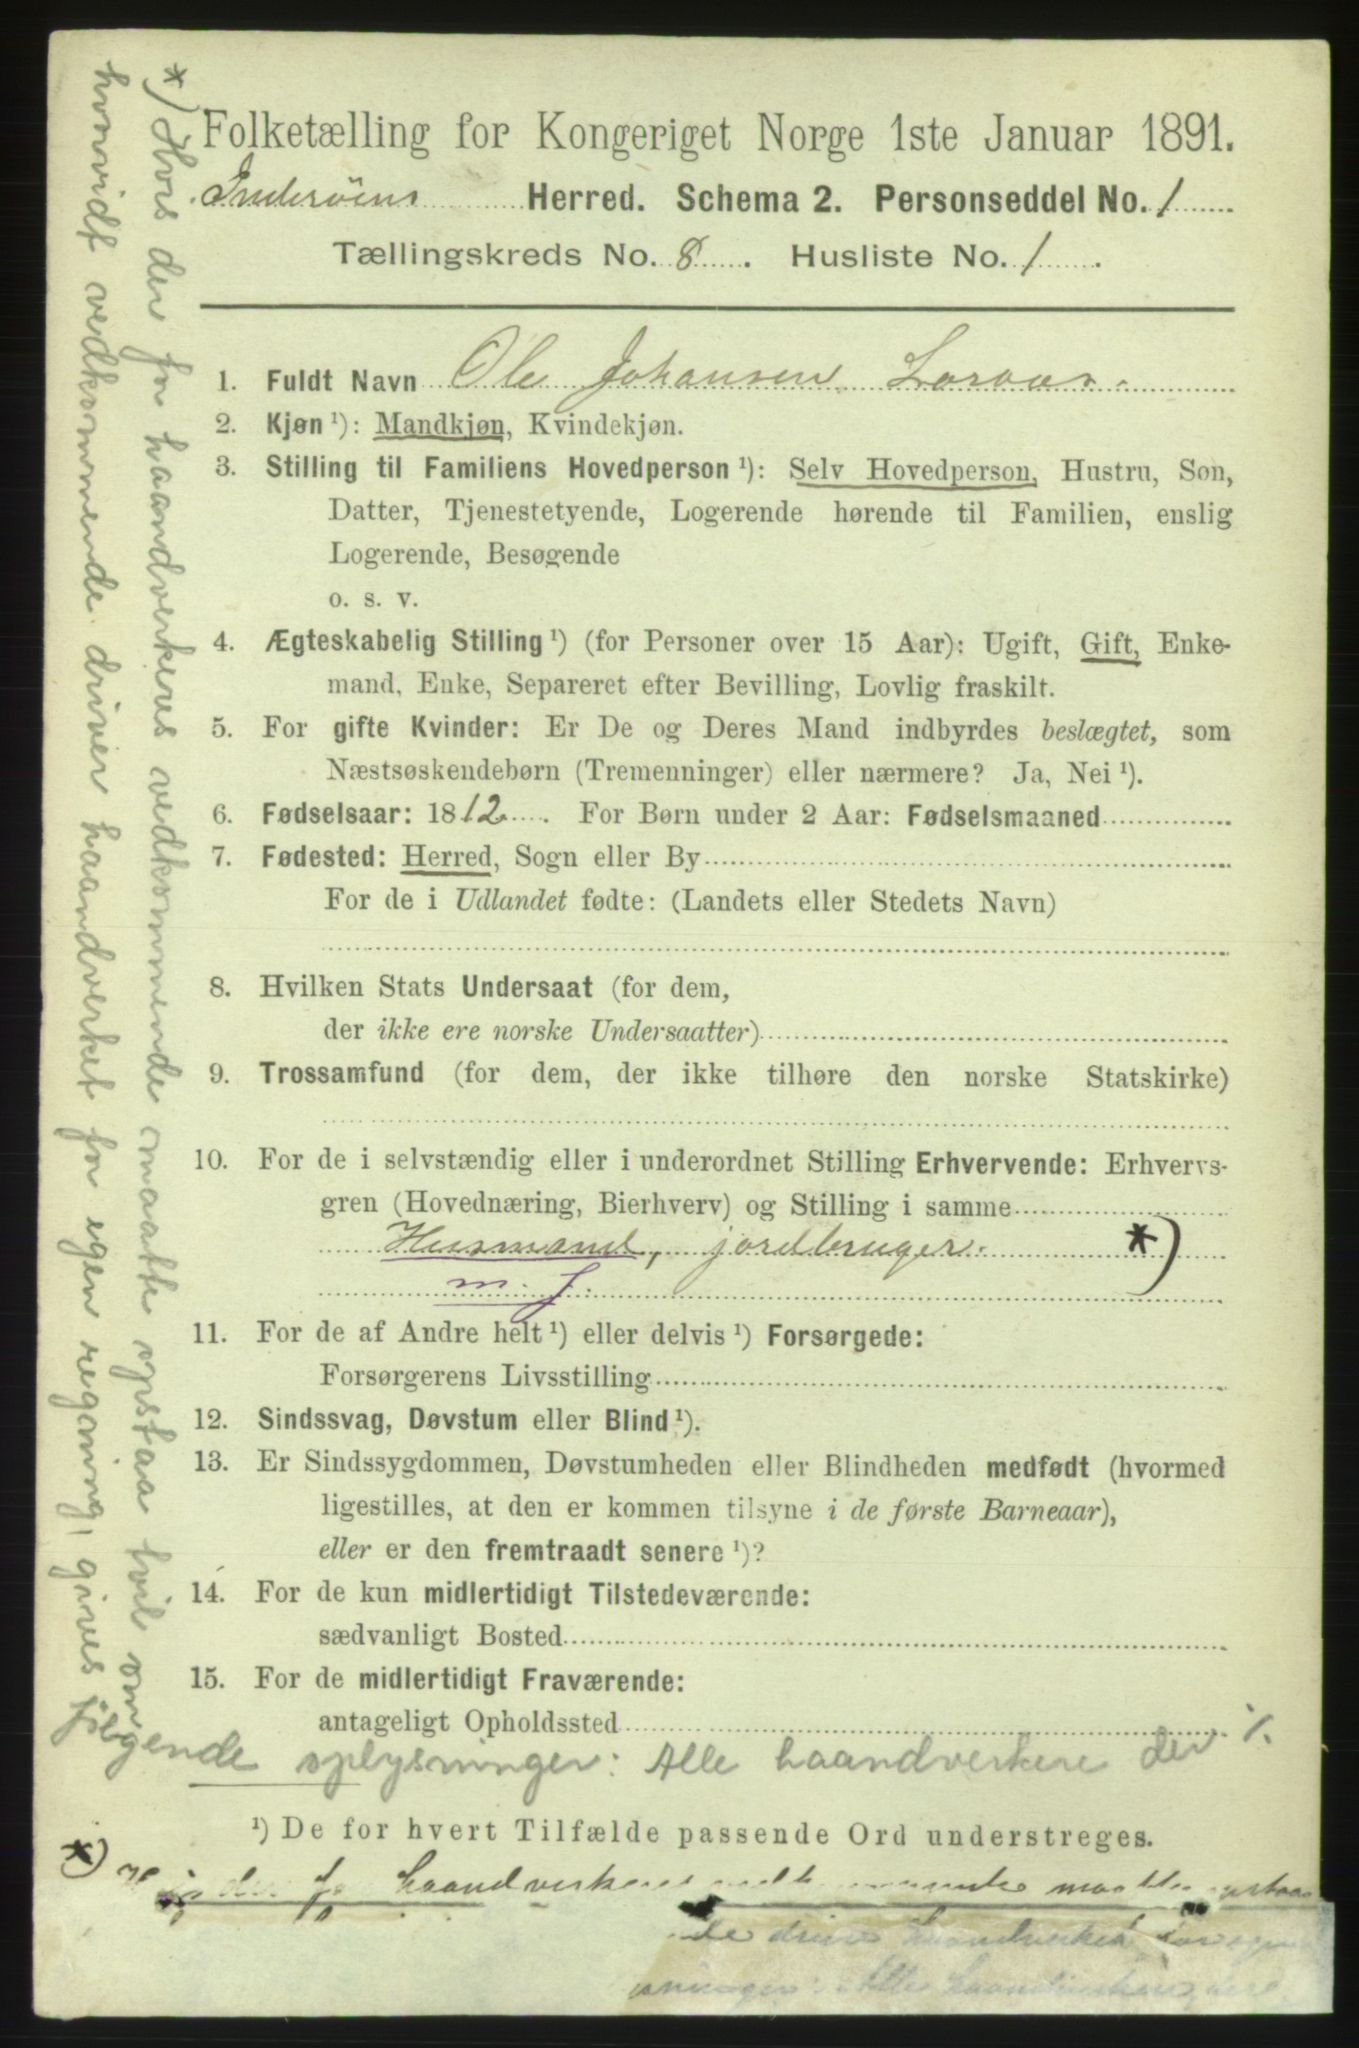 Folketælling for Kongeriget Norge 1ste Januar 1891.
Inderøens Herred. Schema 2. Personseddel No. 1
Tællingskreds No. 8. Husliste No. 1.
1. Fuldt Navn Ole Johansen
2. Kjøn ¹): Mandkjøn, Kvindekjøn.
3. Stilling til Familiens Hovedperson ¹): Selv Hovedperson, Hustru, Søn,
Datter, Tjenestetyende, Logerende hørende til Familien, enslig
Logerende, Besøgende
o. s. v.
4. Ægteskabelig Stilling ¹) (for Personer over 15 Aar): Ugift, Gift, Enke-
mand, Enke, Separeret efter Bevilling, Lovlig fraskilt.
5. For gifte Kvinder: Er De og Deres Mand indbyrdes beslægtet, som
Næstsøskendebørn (Tremenninger) eller nærmere? Ja, Nei ¹).
6. Fødselsaar: 1812. For Børn under 2 Aar: Fødselsmaaned
7. Fødested: Herred, Sogn eller By
For de i Udlandet fødte: (Landets eller Stedets Navn)
8. Hvilken Stats Undersaat (for dem,
der ikke ere norske Undersaatter)
9. Trossamfund (for dem, der ikke tilhøre den norske Statskirke)
10. For de i selvstændig eller i underordnet Stilling Erhvervende: Erhvervs-
gren (Hovednæring, Bierhverv) og Stilling i samme
Husmand, jordbruger. *)
m. j.
11. For de af Andre helt ¹) eller delvis ¹) Forsørgede:
Forsørgerens Livsstilling
12. Sindssvag, Døvstum eller Blind ¹).
13. Er Sindssygdommen, Døvstumheden eller Blindheden medfødt (hvormed
ligestilles, at den er kommen tilsyne i de første Barneaar),
eller er den fremtraadt senere ¹)?
14. For de kun midlertidigt Tilstedeværende:
sædvanligt Bosted
15. For de midlertidigt Fraværende:
antageligt Opholdssted
*) Hvis der for haandverkeres vedkommende maatte opstaa tvil om
hvorvidt vedkommende driver haandverket for egen regning, gives
følgende oplysninger: Alle haandverkere der %.
¹) De for hvert Tilfælde passende Ord understreges.
*) haandverkeres maatte opstaa
haandverket for egen
Alle haandverkere